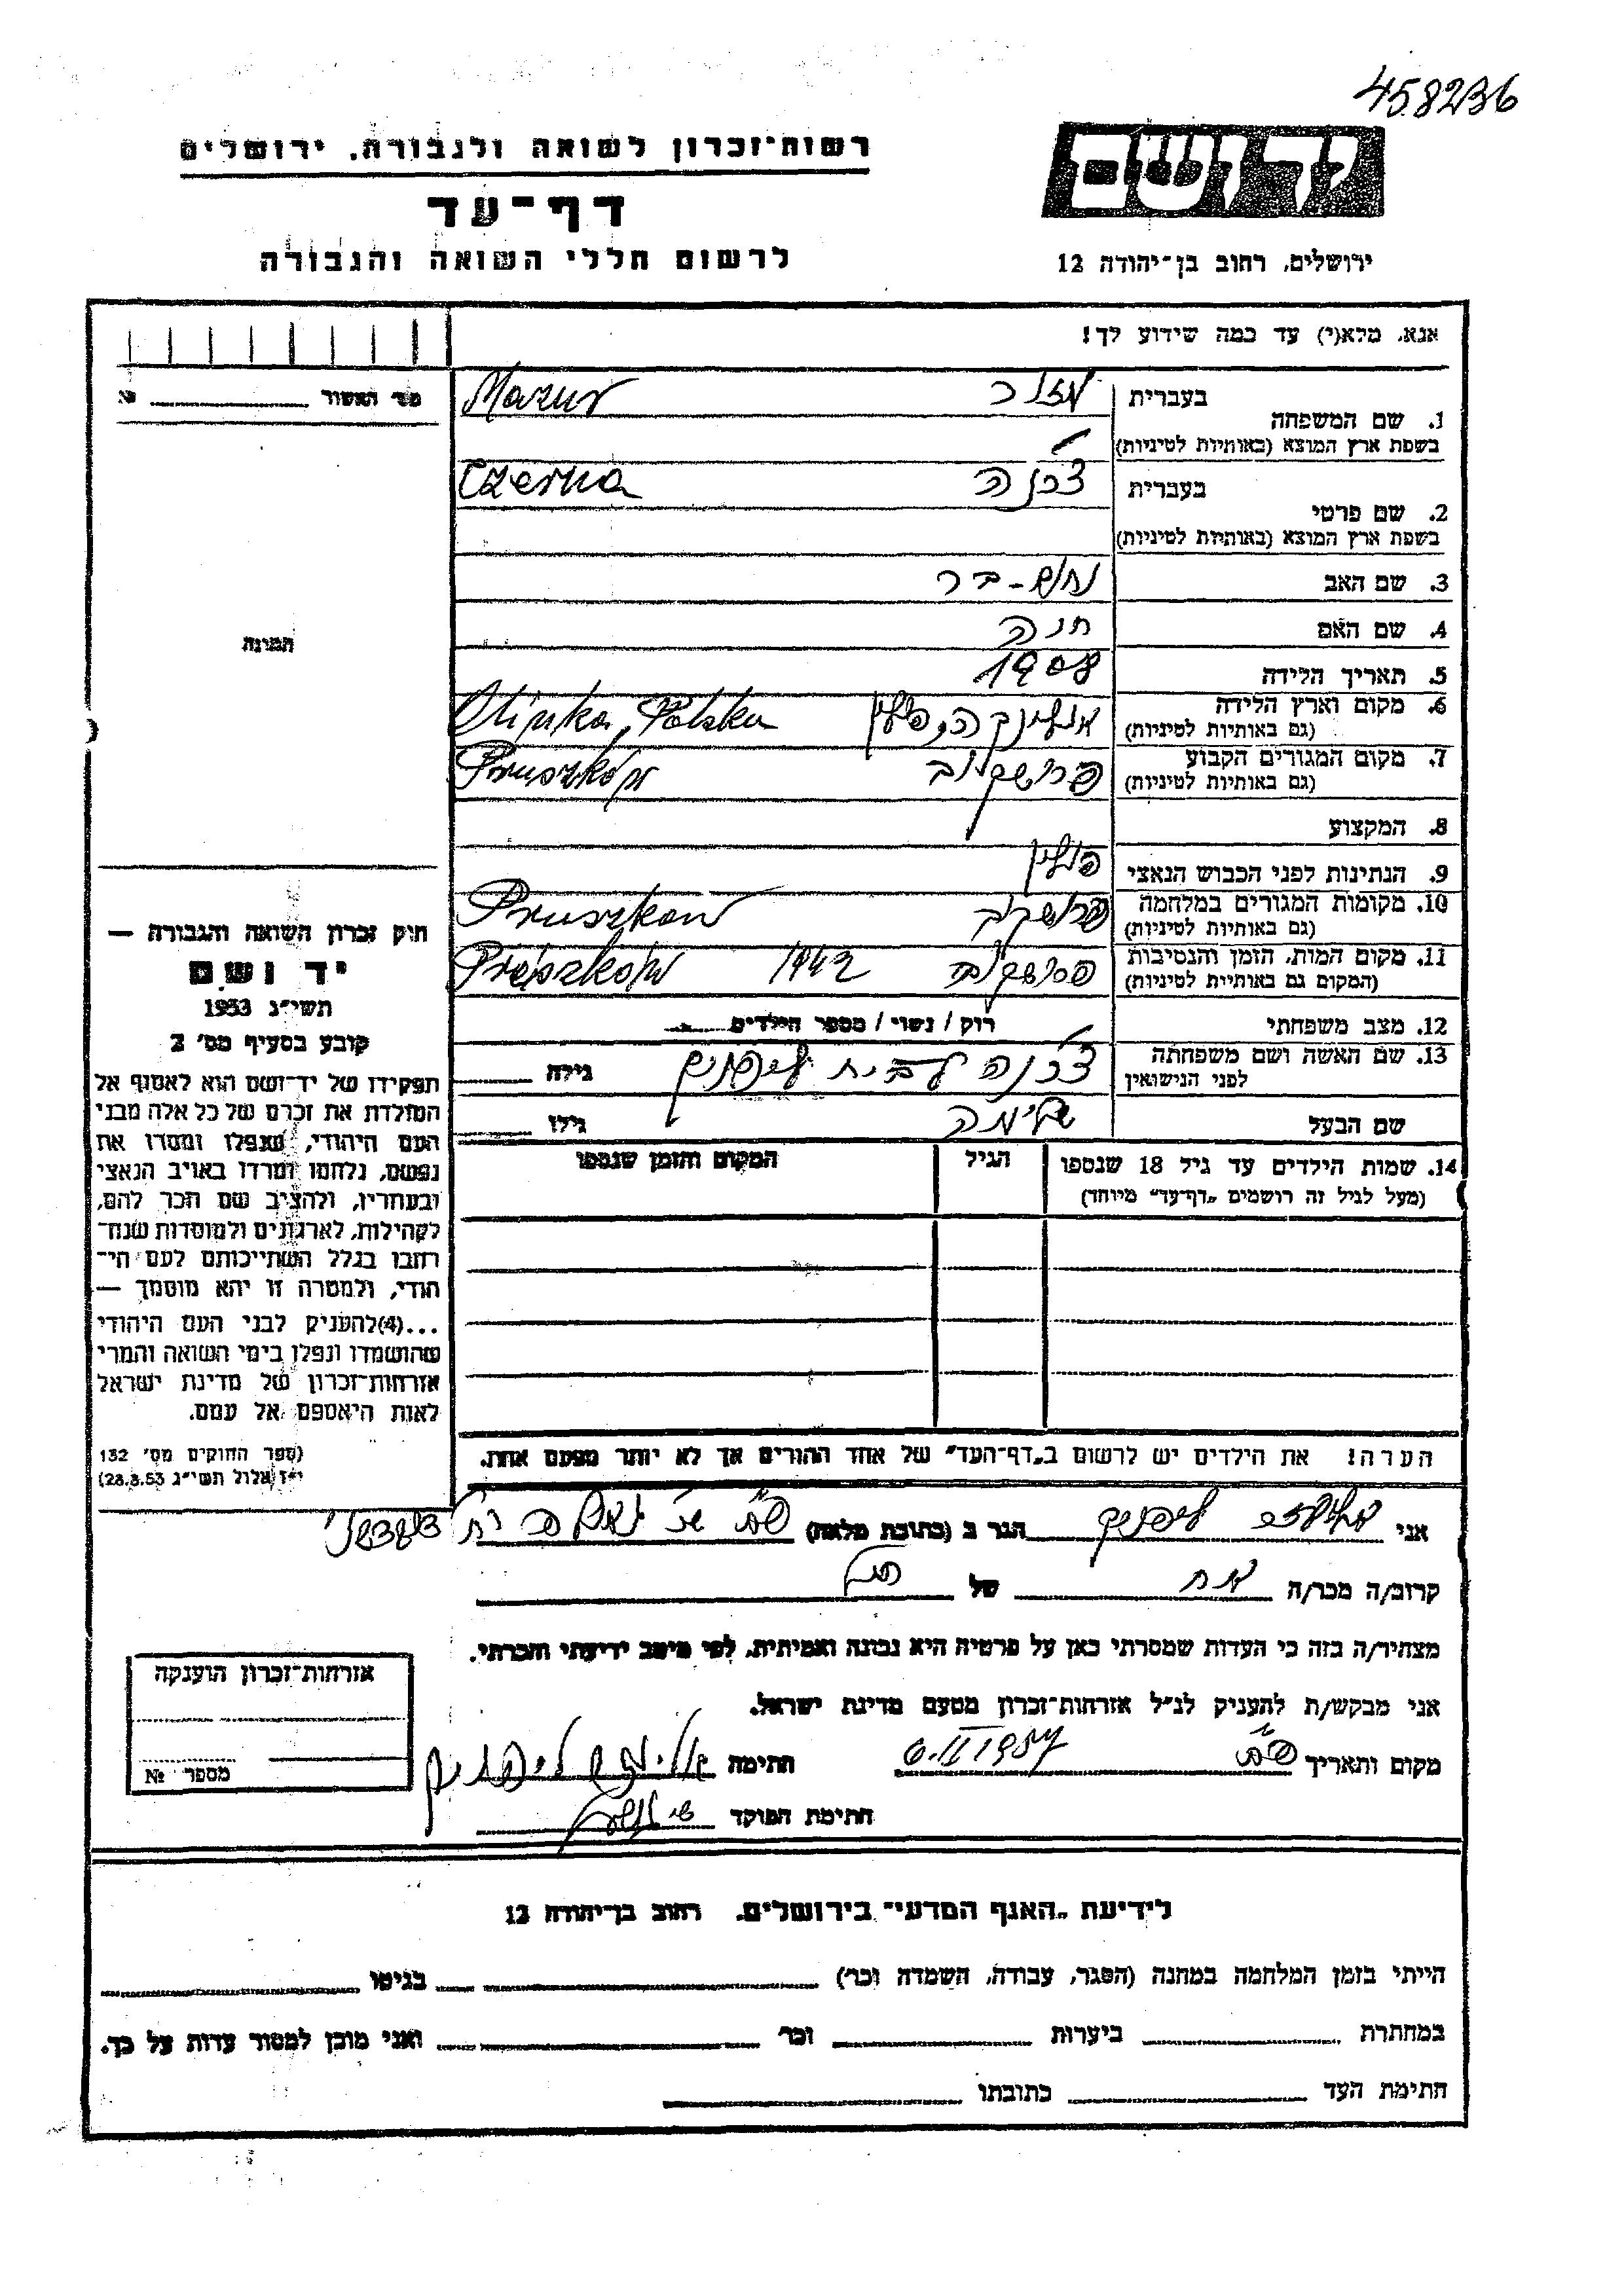 458236
יד ושם
רשות-זכרון לשואה ולגבורה, ירושלים
דף-עד
לרשום חללי השואה והגבורה
ירושלים, רחוב בן-יהודה 12
אנא, מלא(י) עד כמה שידוע לך!
מס' האשור № 
1. שם המשפחה בעברית מזור Mazur
בשפת ארץ המוצא (באותיות לטיניות)
2. שם פרטי בעברית צ'רנה Czerna
בשפת ארץ המוצא (באותיות לטיניות)
3. שם האב נחום-בר
4. שם האם חנה
5. תאריך הלידה 1908
6. מקום וארץ הלידה פולין Polska
(גם באותיות לטיניות)
7. מקום המגורים הקבוע פרושקוב Pruszków
(גם באותיות לטיניות)
8. המקצוע
9. הנתינות לפני הכבוש הנאצי פולין
10. מקומות המגורים במלחמה פרושקוב Pruszkow
(גם באותיות לטיניות)
11. מקום המות, הזמן והנסיבות פרושקוב Pruszków 1942
(המקום גם באותיות לטיניות)
12. מצב משפחתי רוק / נשוי / מספר הילדים
13. שם האשה ושם משפחתה צ'רנה לבית ליפניק גילה
לפני הנישואין
שם הבעל שלימה גילו
14. שמות הילדים עד גיל 18 שנספו הגיל המקום והזמן שנספו
(מעל לגיל זה רושמים "דף-עד" מיוחד)
הערה! את הילדים יש לרשום ב"דף-העד" של אחד ההורים אך לא יותר מפעם אחת.
התמונה
חוק זכרון השואה והגבורה —
יד ושם
תשי"ג 1953
קובע בסעיף מס' 2
תפקידו של יד-ושם הוא לאסוף אל
המולדת את זכרם של כל אלה מבני
העם היהודי, שנפלו ומסרו את
נפשם, נלחמו ומרדו באויב הנאצי
ובעוזריו, ולהציב שם וזכר להם,
לקהילות, לארגונים ולמוסדות שנח-
רבו בגלל השתייכותם לעם הי-
הודי, ולמטרה זו יהא מוסמך —
...(4)להעניק לבני העם היהודי
שהושמדו ונפלו בימי השואה והמרי
אזרחות-זכרון של מדינת ישראל
לאות היאספם אל עמם.
(ספר החוקים מס' 132
י"ז אלול תשי"ג 28.8.53)
אני ליפניק הגר ב (כתובת מלאה)
קרוב/ה מכר/ה אח של הנ"ל
מצהיר/ה בזה כי העדות שמסרתי כאן על פרטיה היא נכונה ואמיתית, לפי מיטב ידיעתי והכרתי.
אני מבקש/ת להעניק לנ"ל אזרחות-זכרון מטעם מדינת ישראל.
מקום ותאריך 6.II 1957 חתימה ליפניק
חתימת הפוקד
אזרחות-זכרון הוענקה
מספר №
לידיעת "האגף המדעי" בירושלים. רחוב בן-יהודה 12
הייתי בזמן המלחמה במחנה (הסגר, עבודה, השמדה וכו') בגיטו
במחתרת ביערות וכו' ואני מוכן למסור עדות על כך.
חתימת העד כתובתו